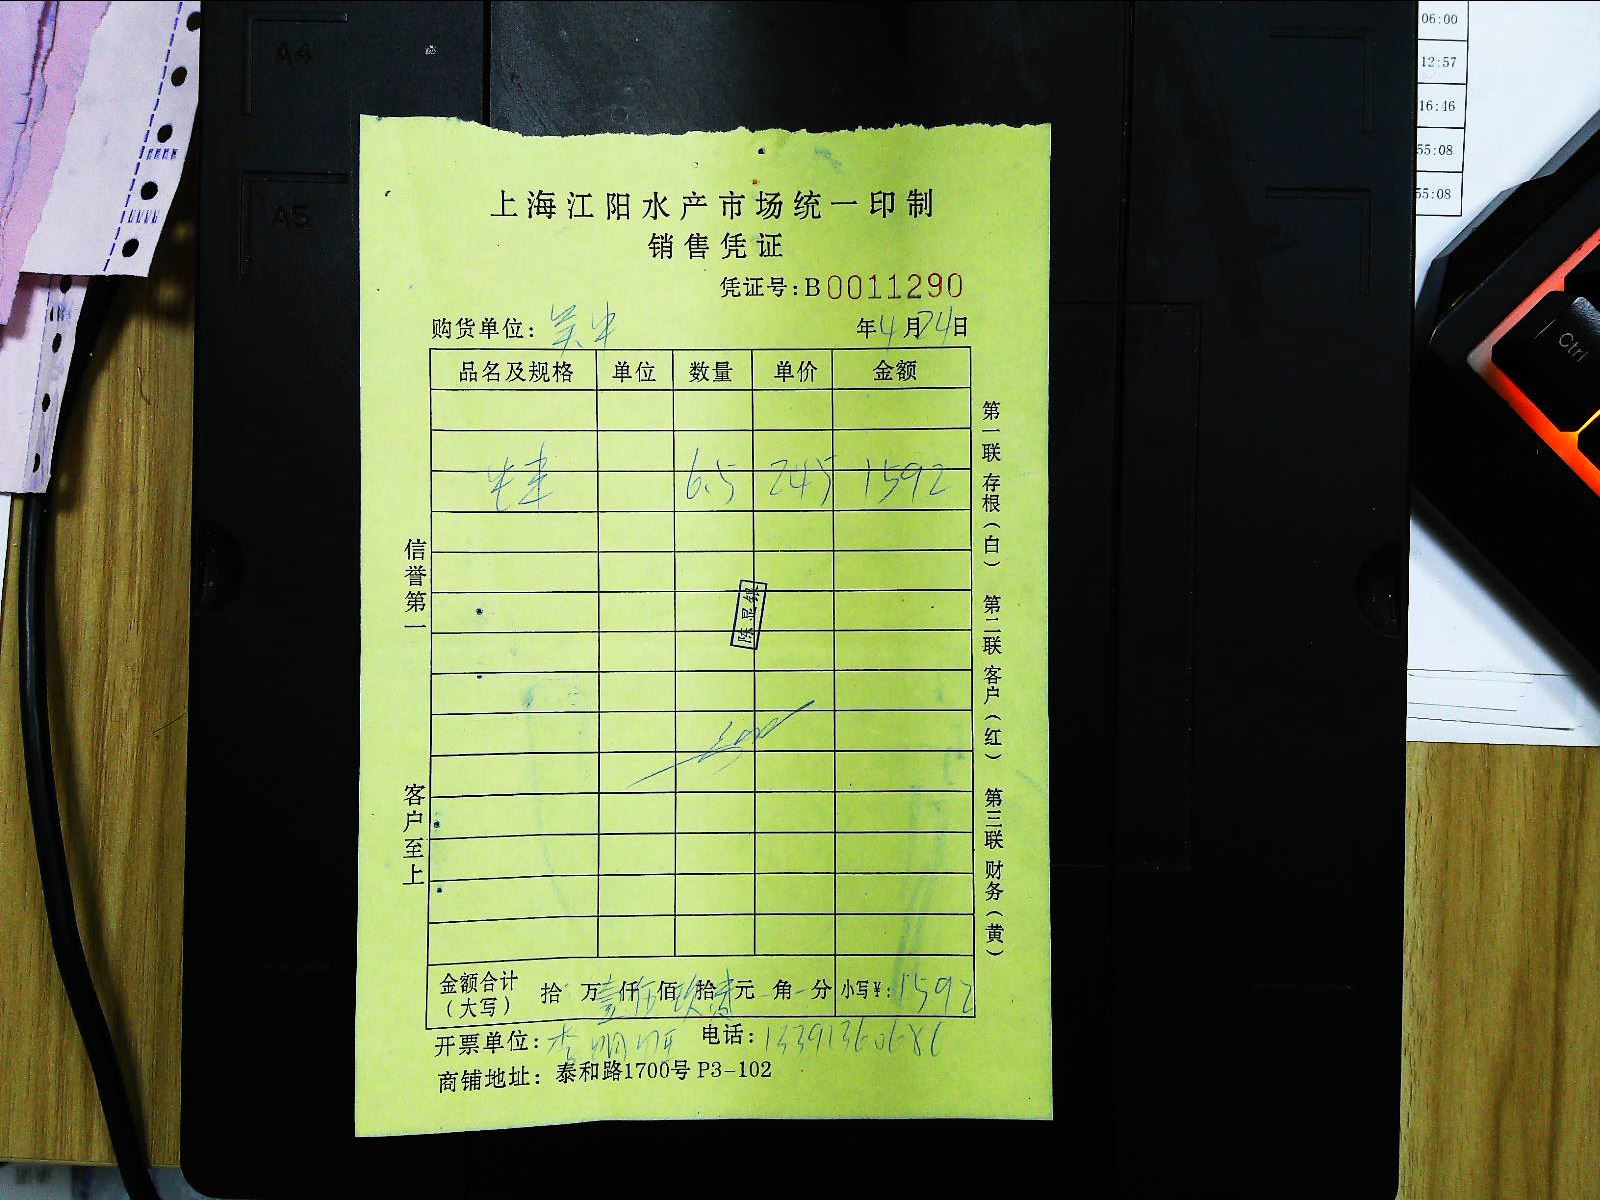 06:00
12:57
16:46
55:08
55:08
A4
A5
Ctrl
上海江阳水产市场统一印制
销售凭证
凭证号:B0011290
购货单位: 年4月24日
品名及规格 单位 数量 单价 金额
6.5 245 1592
信誉第一
客户至上
第一联 存根(白) 第二联 客户(红) 第三联 财务(黄)
陈显银
金额合计(大写) 拾 万壹仟伍佰玖拾贰元 角 分 小写¥:1592
开票单位: 电话:13391360686
商铺地址:泰和路1700号 P3-102